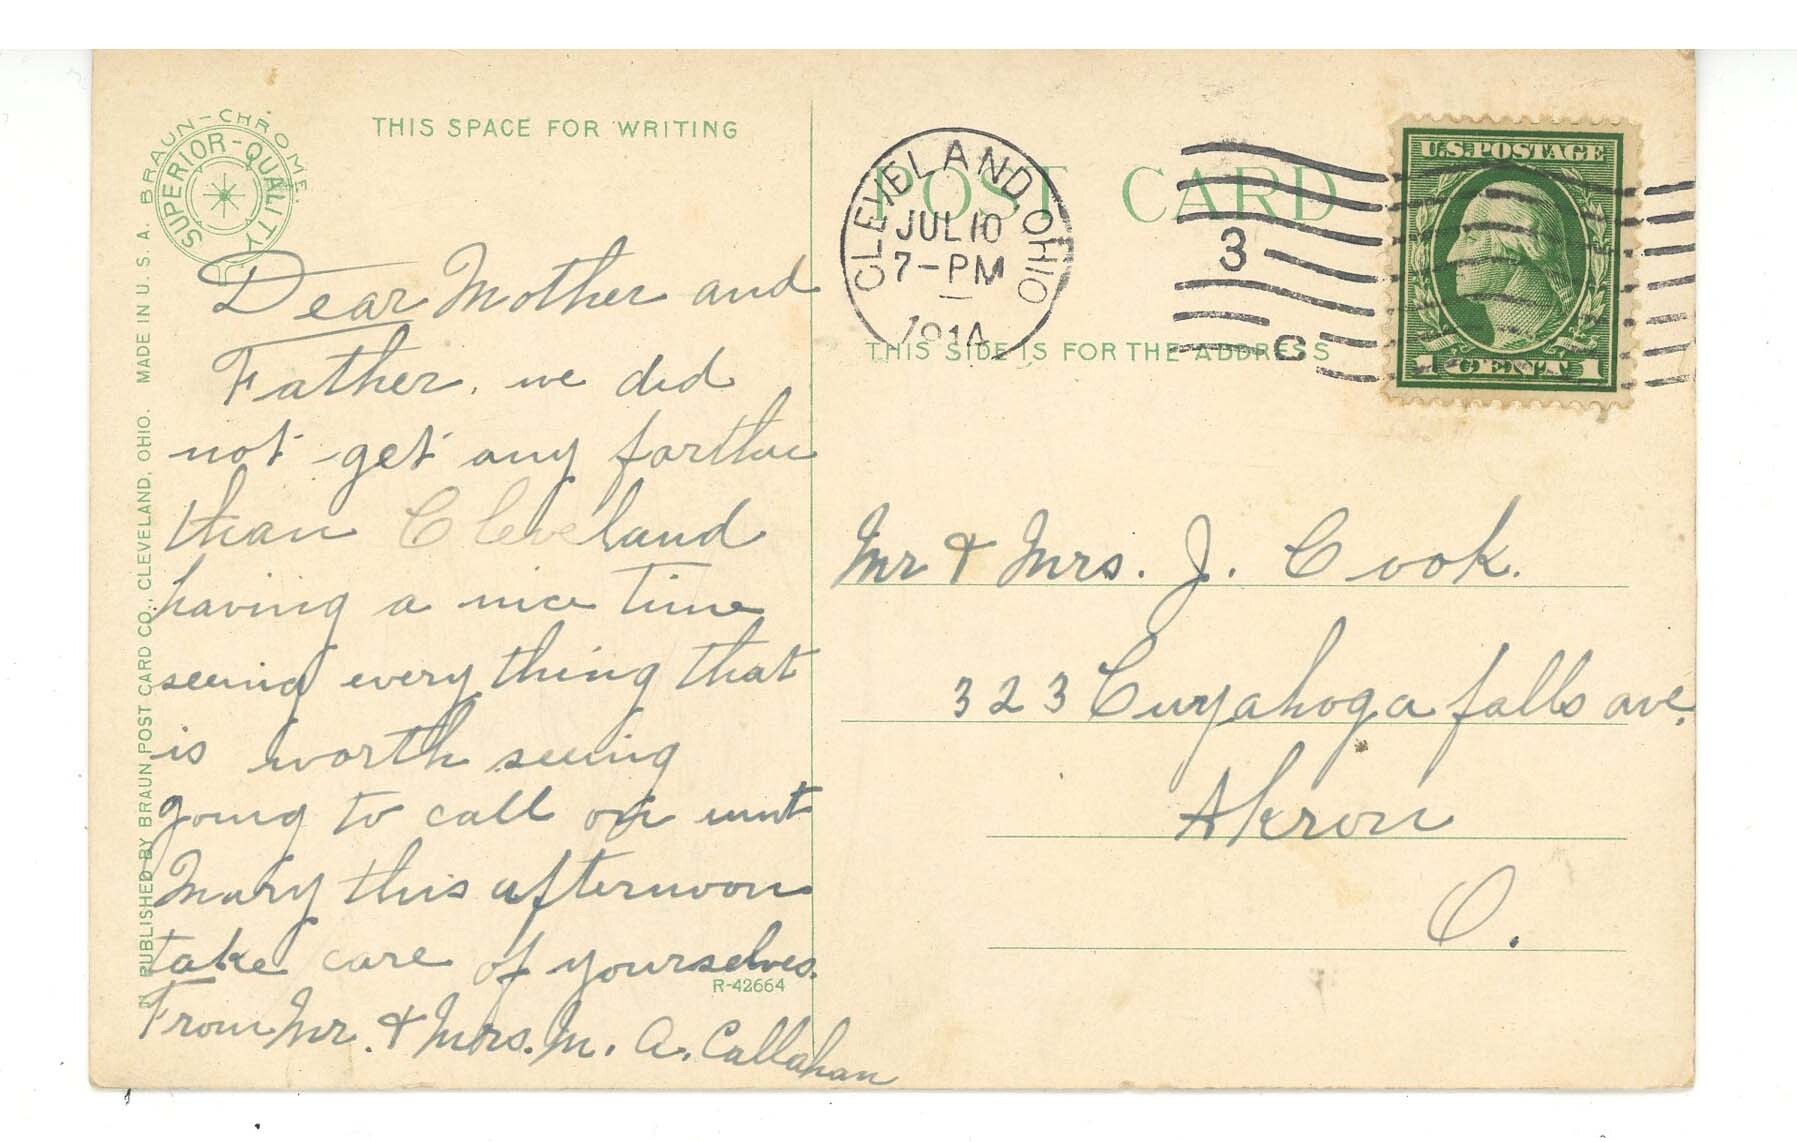 BRAUN-CHROME.
SUPERIOR-QUALITY
THIS SPACE FOR WRITING
Dear Mother and
Father. we did
not get any farther
than Cleveland
having a nice time
seeing every thing that
is worth seeing
going to call on aunt
Mary this afternoon
take care of yourselves.
From Mr. & Mrs. M. A. Callahan
R-42664
PUBLISHED BY BRAUN POST CARD CO., CLEVELAND, OHIO. MADE IN U. S. A.
POST CARD
THIS SIDE IS FOR THE ADDRESS
CLEVELAND, OHIO
JUL 10
7-PM
1914
3
C
U.S. POSTAGE
1 CENT 1
Mr & Mrs. J. Cook.
323 Cuyahoga falls ave.
Akron
O.